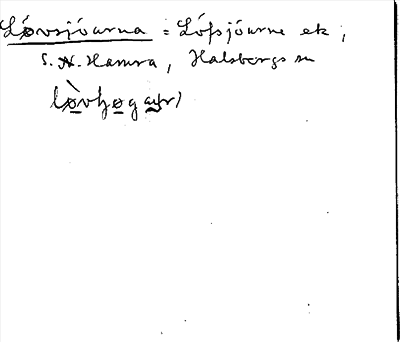 Lövsjöarna = Löfsjöarne ek;
S. N. Hamra, Halsbergs sn
lòvhøgar)